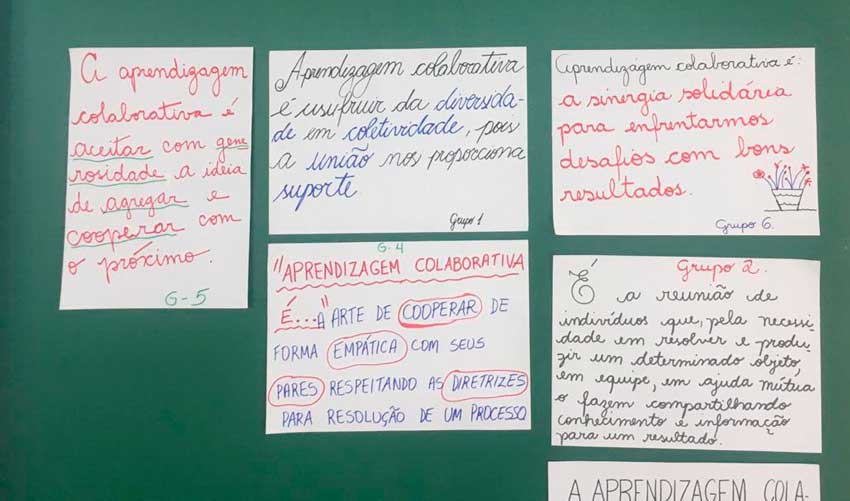 A aprendizagem
colaborativa é
aceitar com gene
rosidade a ideia
de agregar e
cooperar com
o próximo.
G-5
Aprendizagem colaborativa
é usufruir da diversida-
de em coletividade, pois
a união nos proporciona
suporte.
Grupo 1
G-4
"APRENDIZAGEM COLABORATIVA
É..." A ARTE DE COOPERAR DE
FORMA EMPÁTICA COM SEUS
PARES RESPEITANDO AS DIRETRIZES
PARA RESOLUÇÃO DE UM PROCESSO
Aprendizagem colaborativa é:
a sinergia solidária
para enfrentarmos
desafios com bons
resultados.
Grupo 6.
Grupo 2.
É a reunião de
indivíduos que, pela necessi-
dade em resolver e produ-
zir um determinado objeto,
em equipe, em ajuda mútua
o fazem compartilhando
conhecimento e informação
para um resultado.
A APRENDIZAGEM COLA-